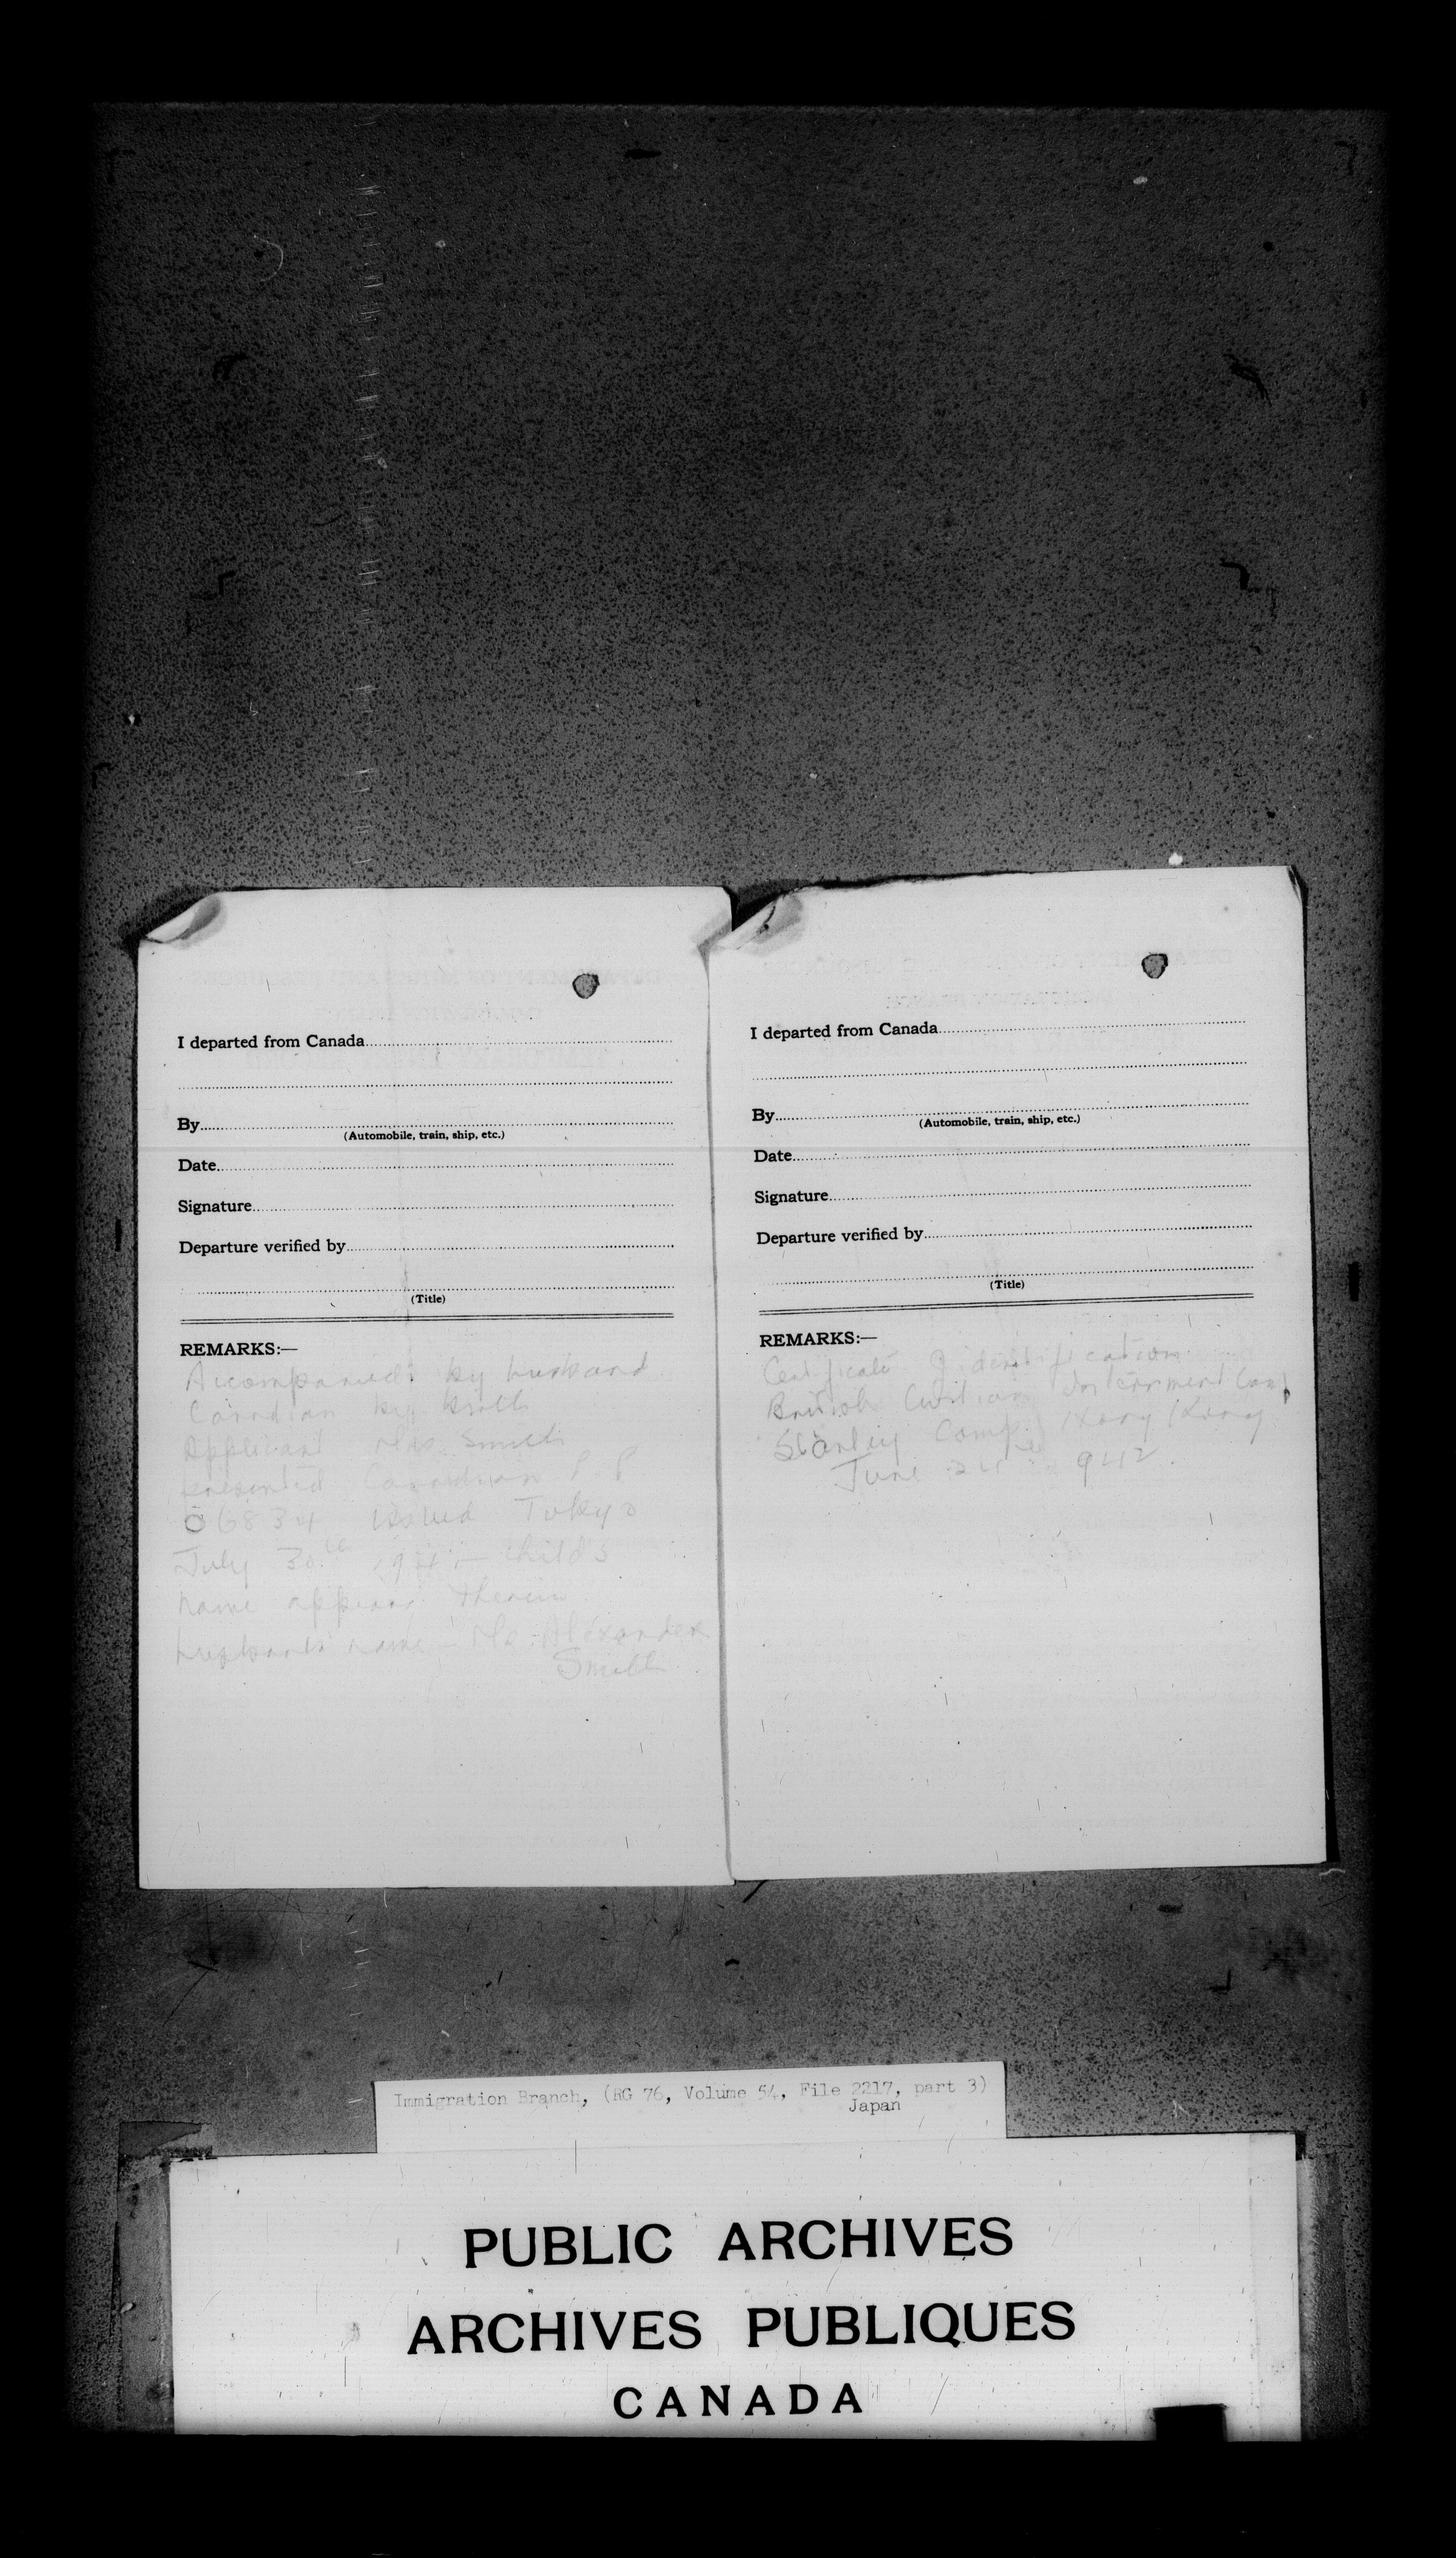 I departed from Canada
By
(Automobile, train, ship, etc.)
Date
Signature
Departure verified by
(Title)
REMARKS:—
Accompanied by husband
Canadian by birth
Applicant Mrs Smith
presented Canadian P.P
issued Tokyo
July 30th child's
name appears therein
husbands name - Mr. Alexander
Smith
I departed from Canada
By
(Automobile, train, ship, etc.)
Date
Signature
Departure verified by
(Title)
REMARKS:—
Certificate of identification
British Civilian Internment Camp
Stanley Camp Hong Kong
June 24 1942
Immigration Branch, (RG 76, Volume 54, File 2217, part 3)
Japan
PUBLIC ARCHIVES
ARCHIVES PUBLIQUES
CANADA